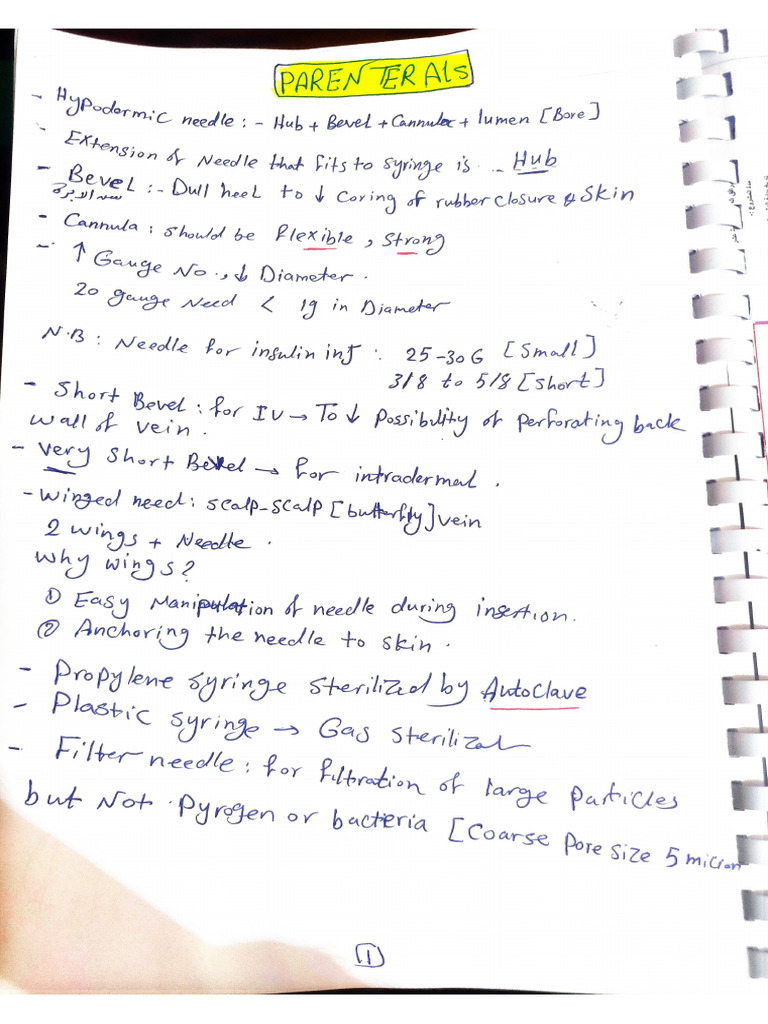 PARENTERALS
- Hypodermic needle : - Hub + Bevel + Cannula + lumen [Bore]
- Extension of Needle that fits to syringe is .. Hub
- Bevel :- Dull heel to ↓ coring of rubber closure & Skin
- Cannula : should be flexible , strong
- ↑ Gauge No ., ↓ Diameter .
20 gauge Need < 19 in Diameter
N.B : Needle for insulin inj : 25-30 G [Small]
3/8 to 5/8 [short]
- Short Bevel : for IV → To ↓ Possibility of perforating back
wall of vein .
- Very short Bevel → for intradermal .
- winged need : scalp-scalp [butterfly] vein
2 wings + Needle .
why wings ?
① Easy Manipulation of needle during insertion .
② Anchoring the needle to skin .
- Propylene syringe sterilized by Autoclave
- Plastic syringe → Gas sterilizat
- Filter needle : for filtration of large particles
but Not Pyrogen or bacteria [Coarse pore size 5 micron
1